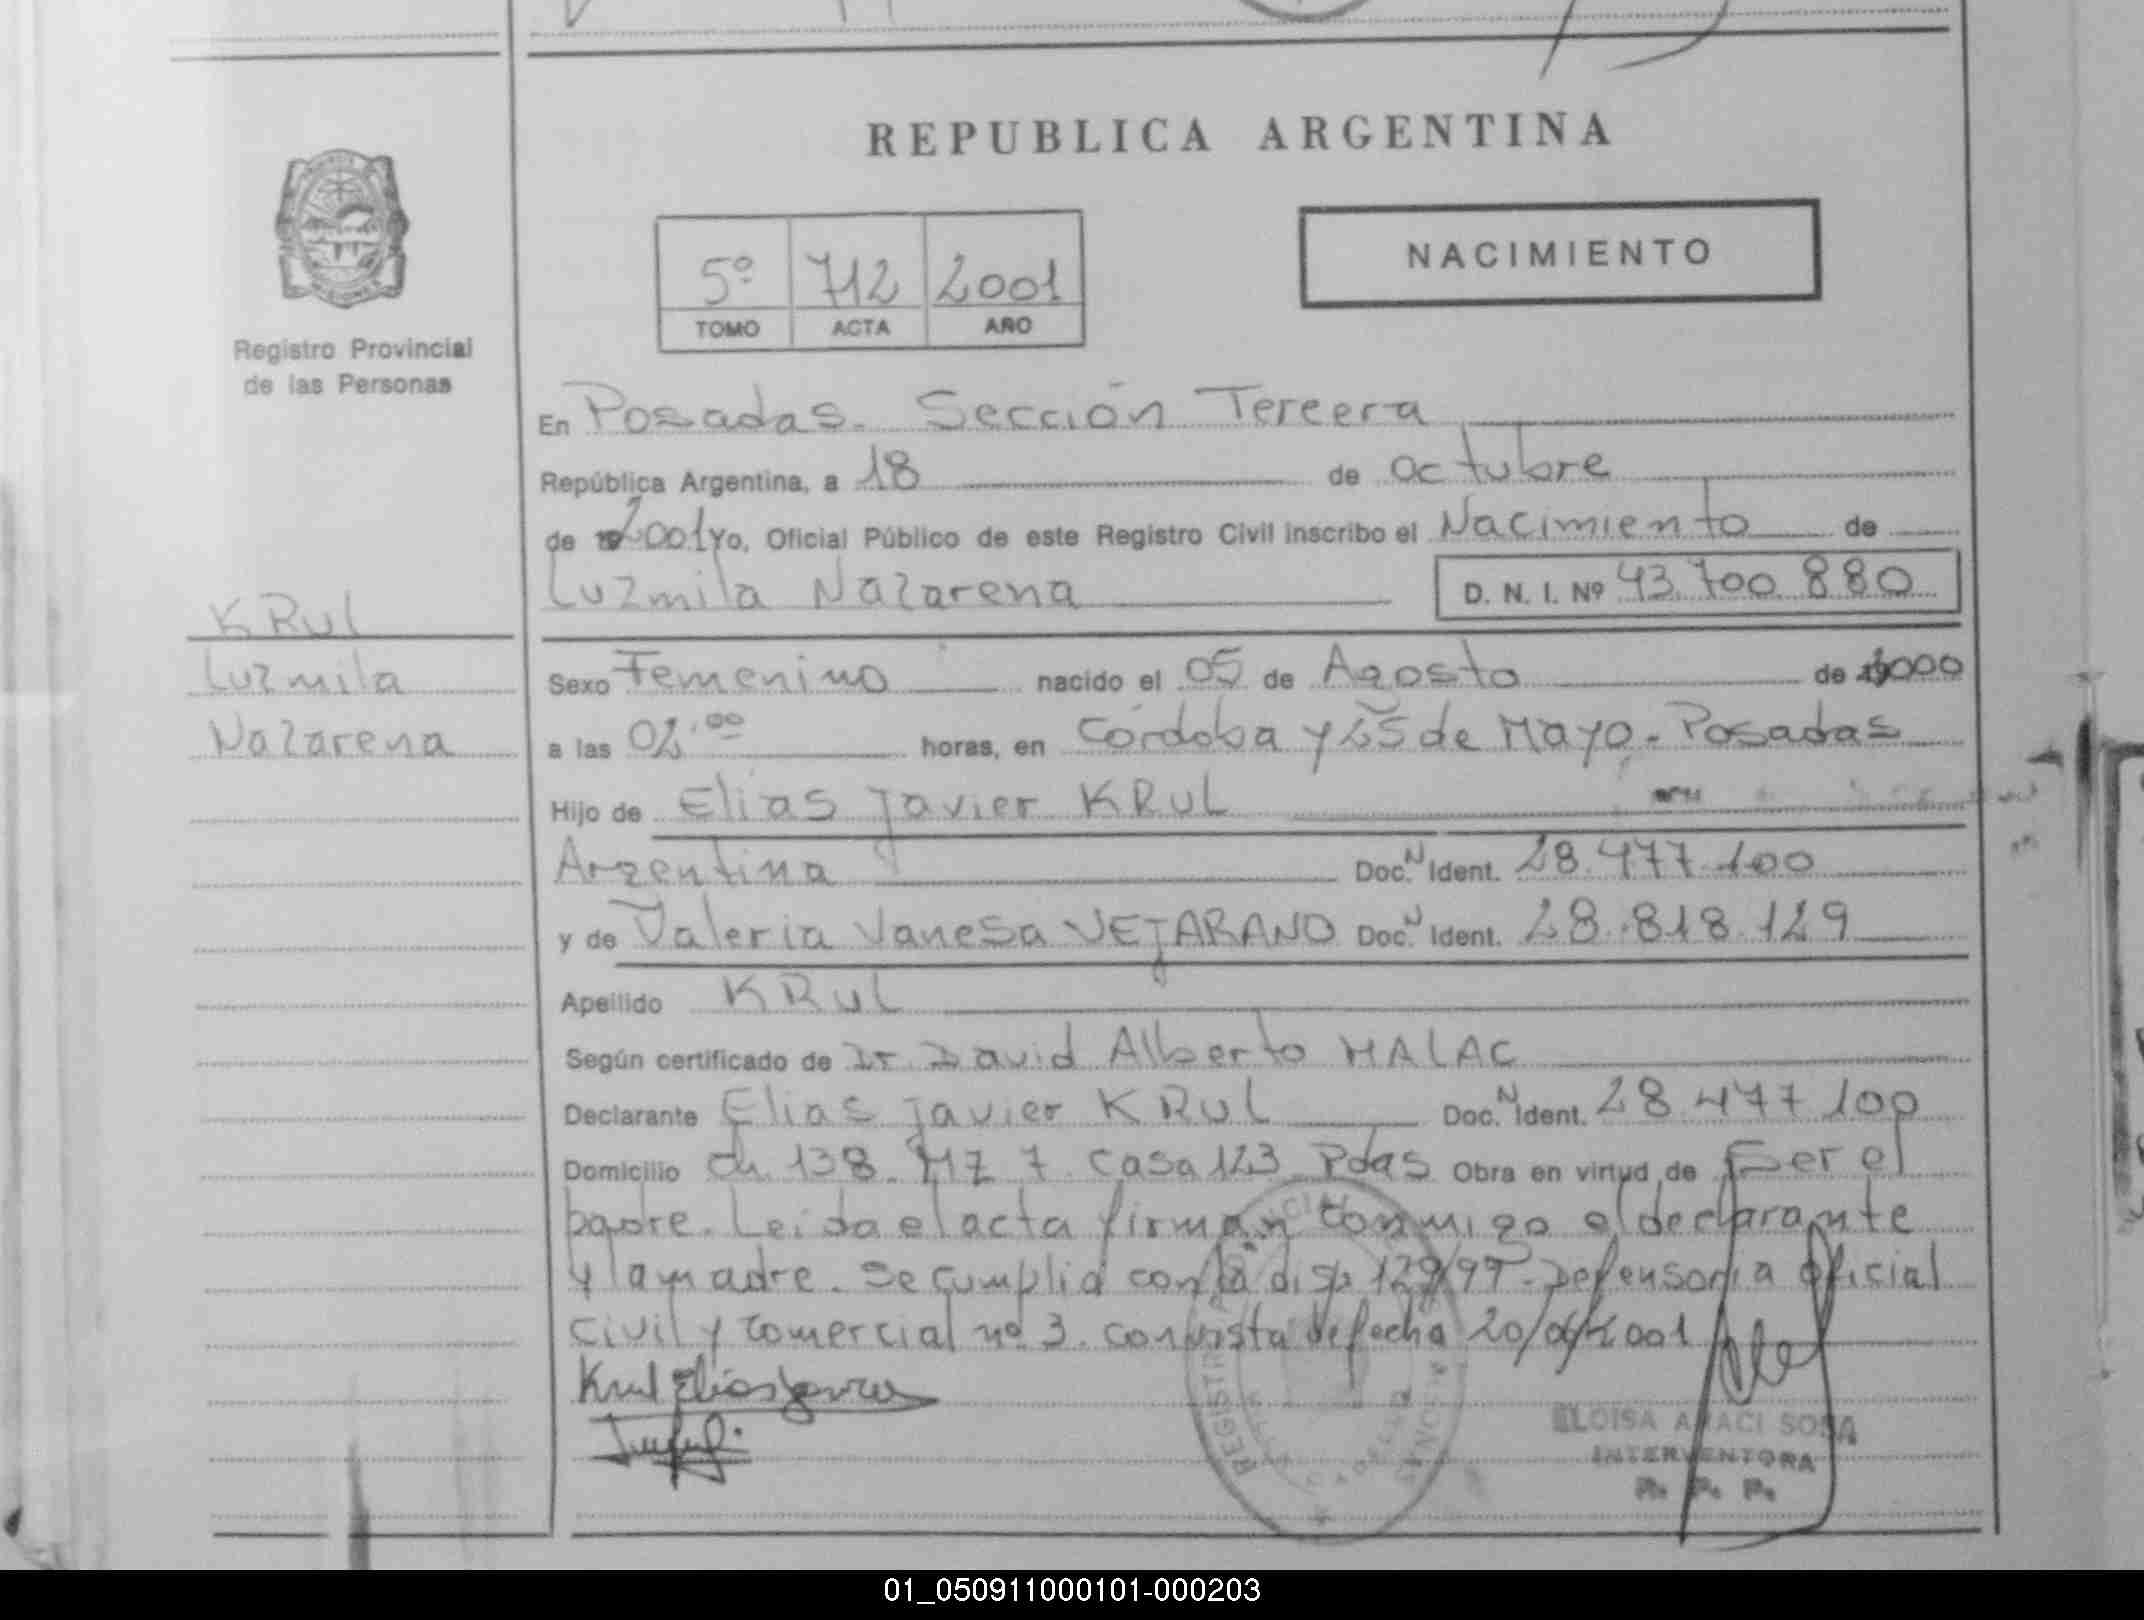 REPUBLICA ARGENTINA
NACIMIENTO
5º 712 2001
TOMO ACTA AÑO
Registro Provincial
de las Personas
En Posadas. Sección Tercera
República Argentina, a 18 de octubre
de 2001 Yo, Oficial Público de este Registro Civil inscribo el Nacimiento de
Luzmila Nazarena D. N. I. Nº 43.700.880
KRUL
Luzmila
Nazarena
Sexo Femenino nacido el 05 de Agosto de 2000
a las 02.00 horas, en Córdoba y 25 de Mayo - Posadas
Hijo de Elias Javier KRUL
Argentina Doc. N Ident. 28.477.100
y de Valeria Vanesa VEJARANO Doc. N Ident. 28.818.129
Apellido KRUL
Según certificado de Dr. David Alberto MALAC
Declarante Elias Javier KRUL Doc. N Ident. 28.477.100
Domicilio ch. 138. Mz 7. Casa 123 Pdas Obra en virtud de Ser el
padre. Leida el acta firman conmigo el declarante
y la madre. Se cumplió con la disp. 129/97 - Defensoria Oficial
Civil y Comercial nº 3. con vista de fecha
Krul Elias Javier
ELOISA ARACI SOSA
INTERVENTORA
R. P. P.
01_050911000101-000203